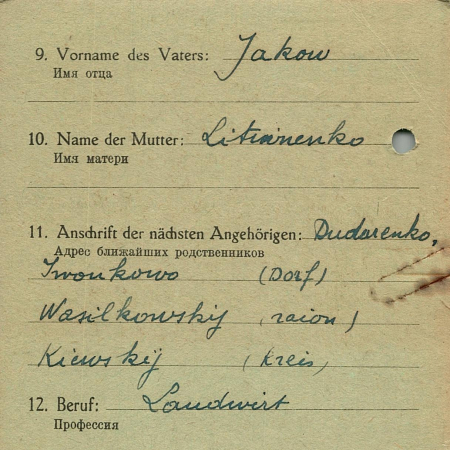 9. Vorname des Vaters: Jakow
Имя отца
10. Name der Mutter: Litwinenko
Имя матери
11. Anschrift der nächsten Angehörigen: Dudarenko,
Адрес ближайших родственников
Iwonkowo (Dorf)
Wasilkowskÿ (raion)
Kiewskÿ (Kreis)
12. Beruf: Landwirt
Профессия